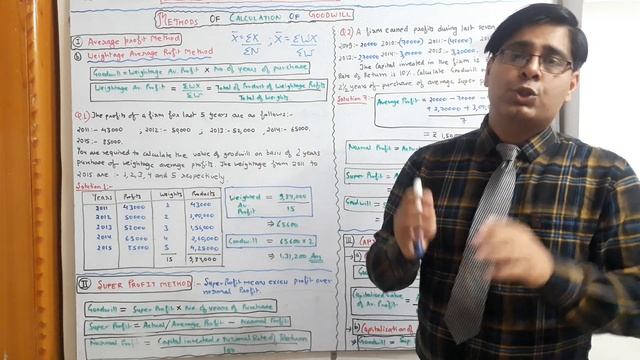 METHODS OF CALCULATION OF GOODWILL
(I) Average profit Method X̄ = ΣX/ΣN , X̄ = ΣWX/ΣW
(b) Weightage Average Profit Method
Goodwill = Weightage Av. Profit × No. of years of purchase
Weightage Av. Profit = ΣWX/ΣW = Total of Product of Weightage Profits/Total of Weights
Q.1) The profits of a firm for last 5 years are as follows:-
2011:- 43000 , 2012:- 50000 , 2013:- 52,000 , 2014:- 65000.
2015:- 85000.
You are required to calculate the value of goodwill on basis of 2 years
purchase of weightage average profits. The weightage from 2011 to
2015 are :- 1, 2, 3, 4 and 5 respectively.
Solution 1:-
Years Profits Weights Products
2011 43000 1 43000
2012 50000 2 1,00,000
2013 52000 3 1,56,000
2014 65000 4 2,60,000
2015 85000 5 4,25,000
15 9,84,000
Weighted Av. Profit = 9,84,000/15
⇒ 65600
Goodwill = 65600 × 2
⇒ 1,31,200 Ans
(II) SUPER PROFIT METHOD - Super Profit mean excess profit over
normal Profit.
Goodwill = Super Profit × No. of years of Purchase
Super Profit = Actual/Average Profit - Normal Profit.
Normal Profit = Capital invested × Normal Rate of Return/100
Q.2) A firm earned profits during last seven
The Capital invested in the firm is
Rate of Return is 10%. Calculate Goodwill
2½ years of purchase of average Super
Solution ?:-
Average Profit = 20000 - 27000
7
Normal Profit =
Super Profit =
Goodwill
III
a)
Capitalised Value
of Av. Profit =
b) Capitalization of
Goodwill =